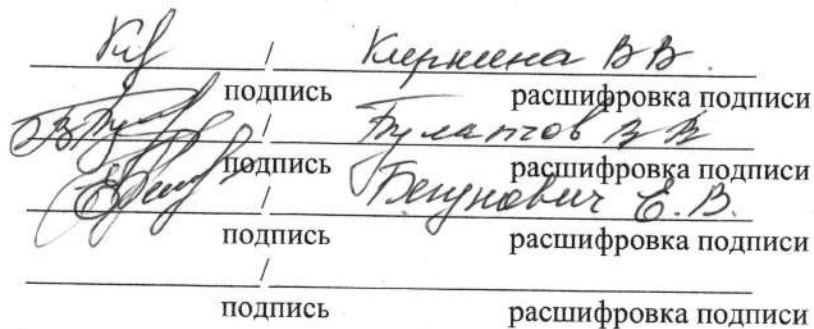 / Киркина В В.
подпись расшифровка подписи
/ Булатов В В
подпись расшифровка подписи
/ Бегунович Е. В.
подпись расшифровка подписи
/
подпись расшифровка подписи